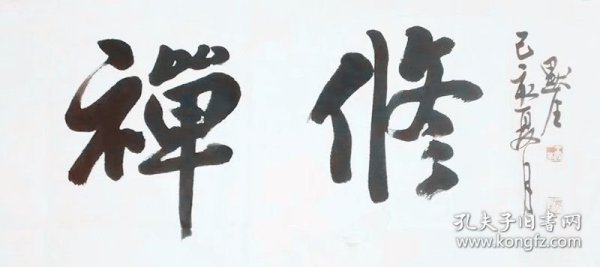 修禅
己亥夏月
孔夫子旧书网
www.kongfz.com